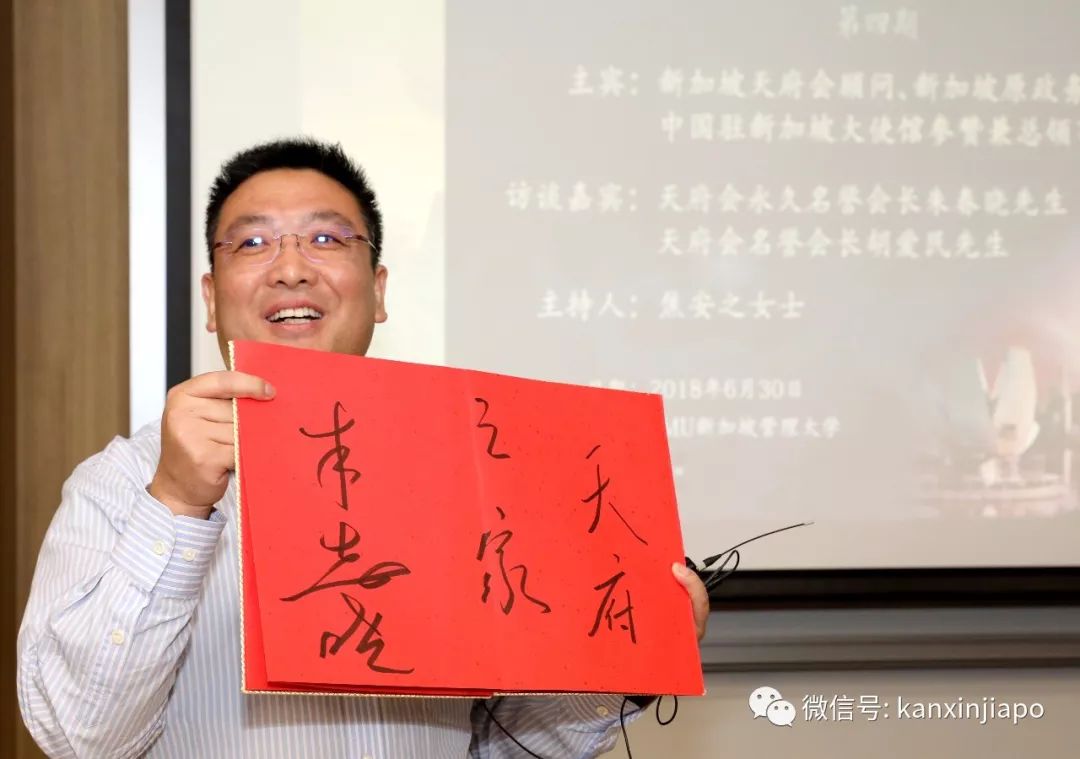 第四期
主宾: 新加坡天府会顾问、新加坡原政务
中国驻新加坡大使馆参赞兼总领
访谈嘉宾: 天府会永久名誉会长朱春晓先生
天府会名誉会长胡爱民先生
主持人: 焦安之女士
2018年6月30日
MU新加坡管理大学
天府
之家
朱春晓
微信号: kanxinjiapo